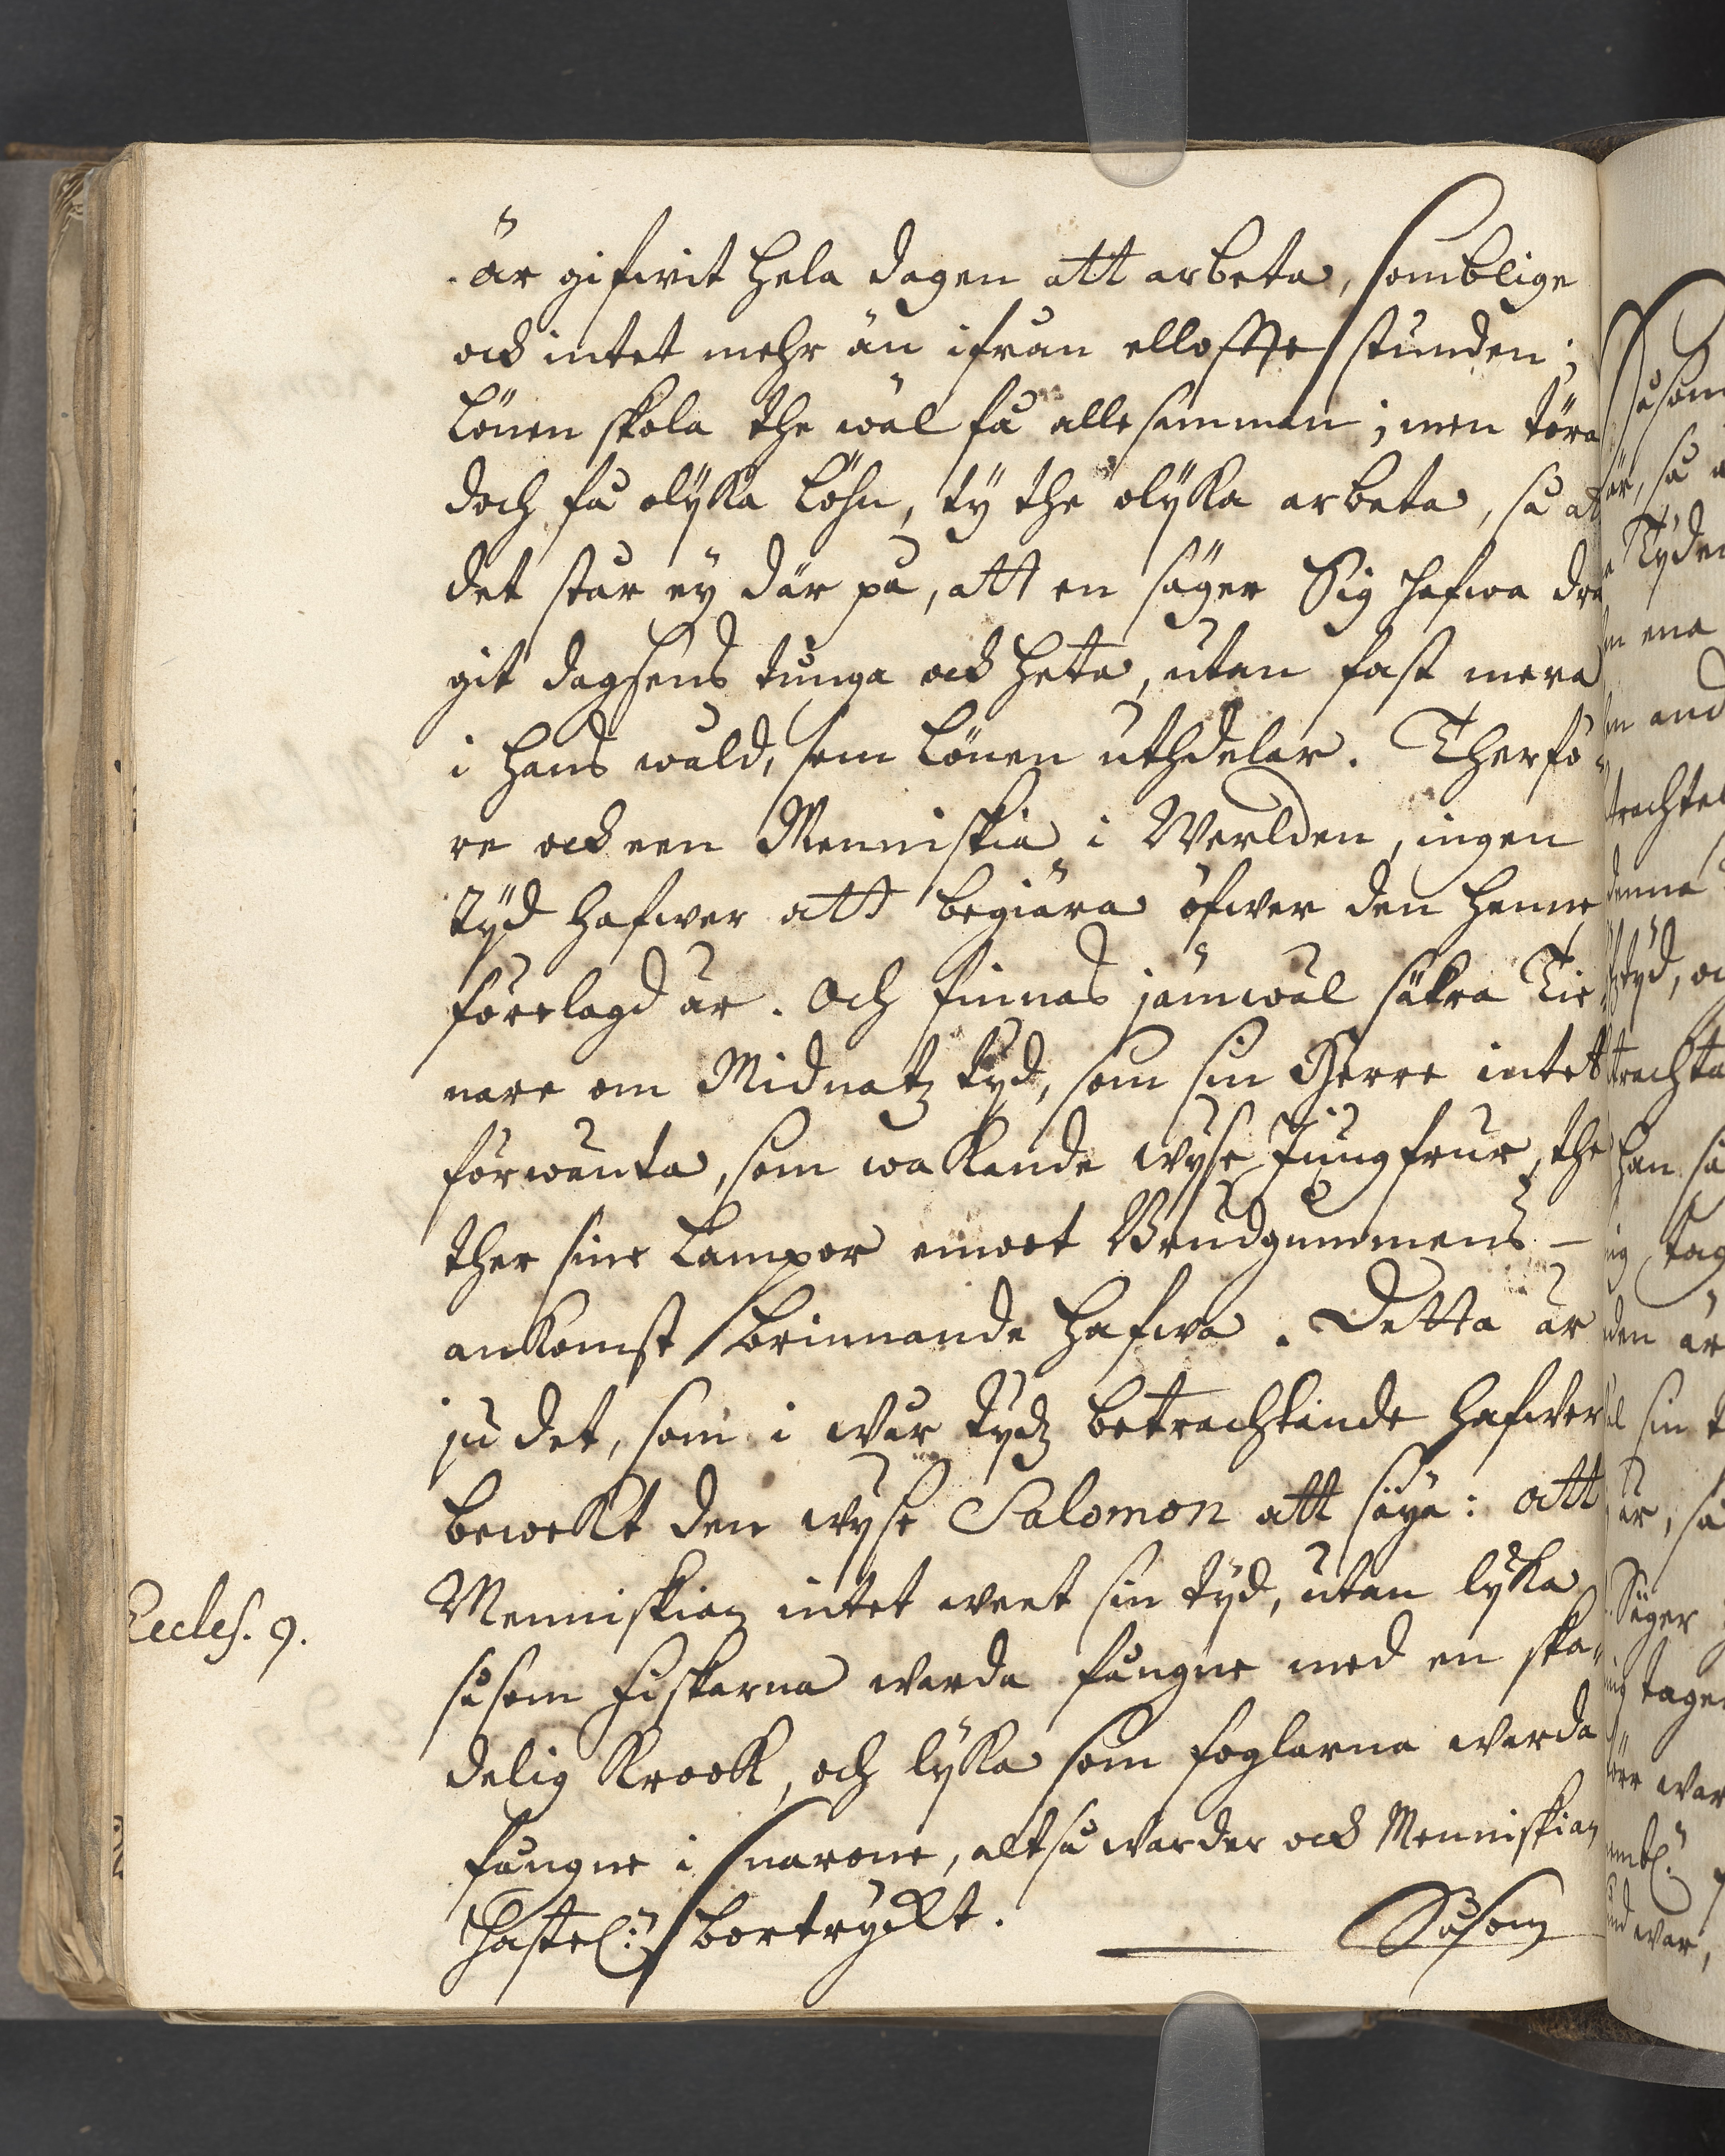 är gifwit hela dagen att arbeta, somblige
ock intet mehr än ifrån ellofte stunden;
Lönen skola the wäl få allesamman; men töra
doch få olÿka Löhn, tÿ the olÿka arbeta, så at
det står eÿ där på, att en säger Sig hafwa dra
git dagsens tunga ock heta, utan fast mera
i hans wåld, som Lönen uthdelar. Therfö-
re ock een Menniskia i Werlden, ingen
tÿd hafwer att begiära öfwer den henne
förelagd är. Och finnas jämwäl säkra Tie-
nare om Midnatz tÿd, som sin Herre intet
förwänta, som wakande wÿse Jungfrur, the
ther sine Lampor emoot Brudgummens -
ankomst brinnande hafwa. Detta är
ju det, som i wår tÿdz betrachtande hafwer
bewekt den wÿse Salomon att säÿa: att
Menniskian intet weet sin tÿd, utan lÿka
såsom Fiskarna warda fångne med en ska-
Eccles. 9.
delig Krook, och lÿka som foglarna warda
fångne i snarone, altså warder ock Menniskian
hastel: bortrÿckt.
Såsom
Såsom
är, så
Tÿden
en ena
en and
trachte
denna
tÿd, oc
trachta
han så
ig tag
den är
sin t
är, så
Säger
ig tage
war
war,